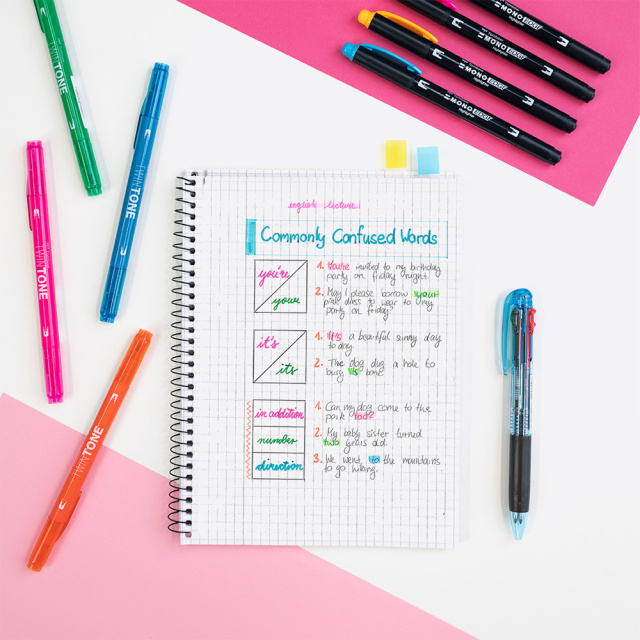 TWINTONE
TWINTONE
TWINTONE
TWINTONE
MONO EDGE
Highlighter
MONO EDGE
Highlighter
MONO EDGE
Highlighter
MONO EDGE
Highlighter
english lecture
Commonly Confused Words
you're
your
1. You're invited to my birthday
party on friday night.
2. May I please borrow your
pink dress to wear to my
party on friday?
it's
its
1. It's a beautiful sunny day
today.
2. The dog dug a hole to
bury its bone.
in addition
number
direction
1. Can my dog come to the
park too?
2. My baby sister turned
two years old.
3. We went to the mountains
to go hiking.
TWINTONE